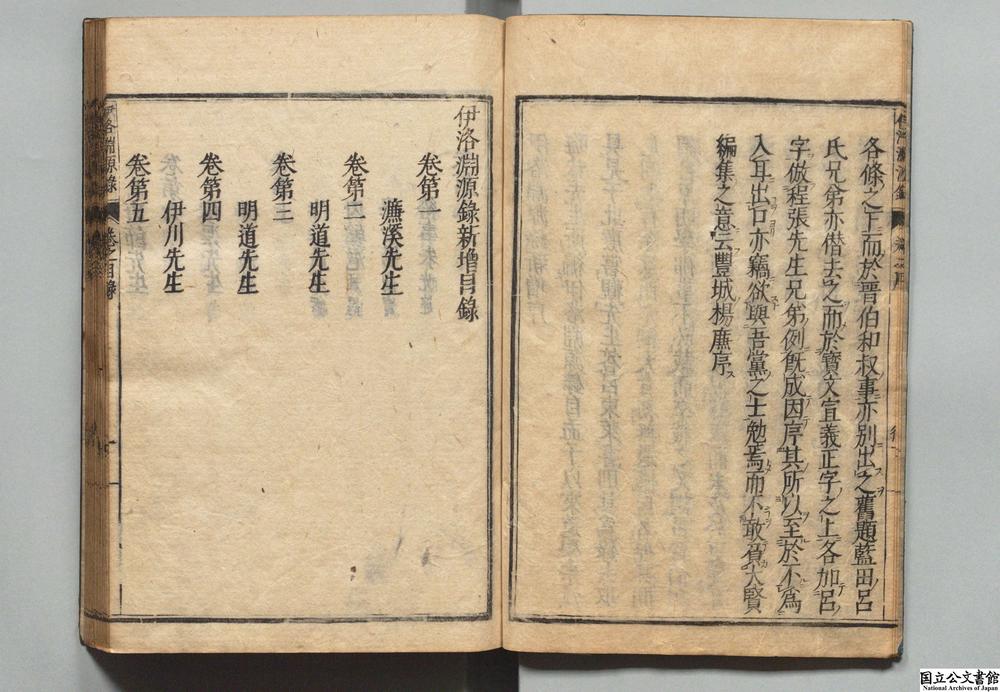 各條之上而於晋伯和叔事亦別出之舊題藍田呂
氏兄弟亦僣去之而於寶文宜義正字之上各加呂
字倣程張先生兄弟例旣成因序其所以至於不為
入耳出口亦竊欲與吾黨之士勉焉而不敢負大賢
編集之意云豐城楊廉序
伊洛淵源錄新增目錄
卷第一
濂溪先生
卷第二
明道先生
卷第三
明道先生
卷第四
伊川先生
卷第五
伊洛淵源錄
卷之目錄
国立公文書館
National Archives of Japan